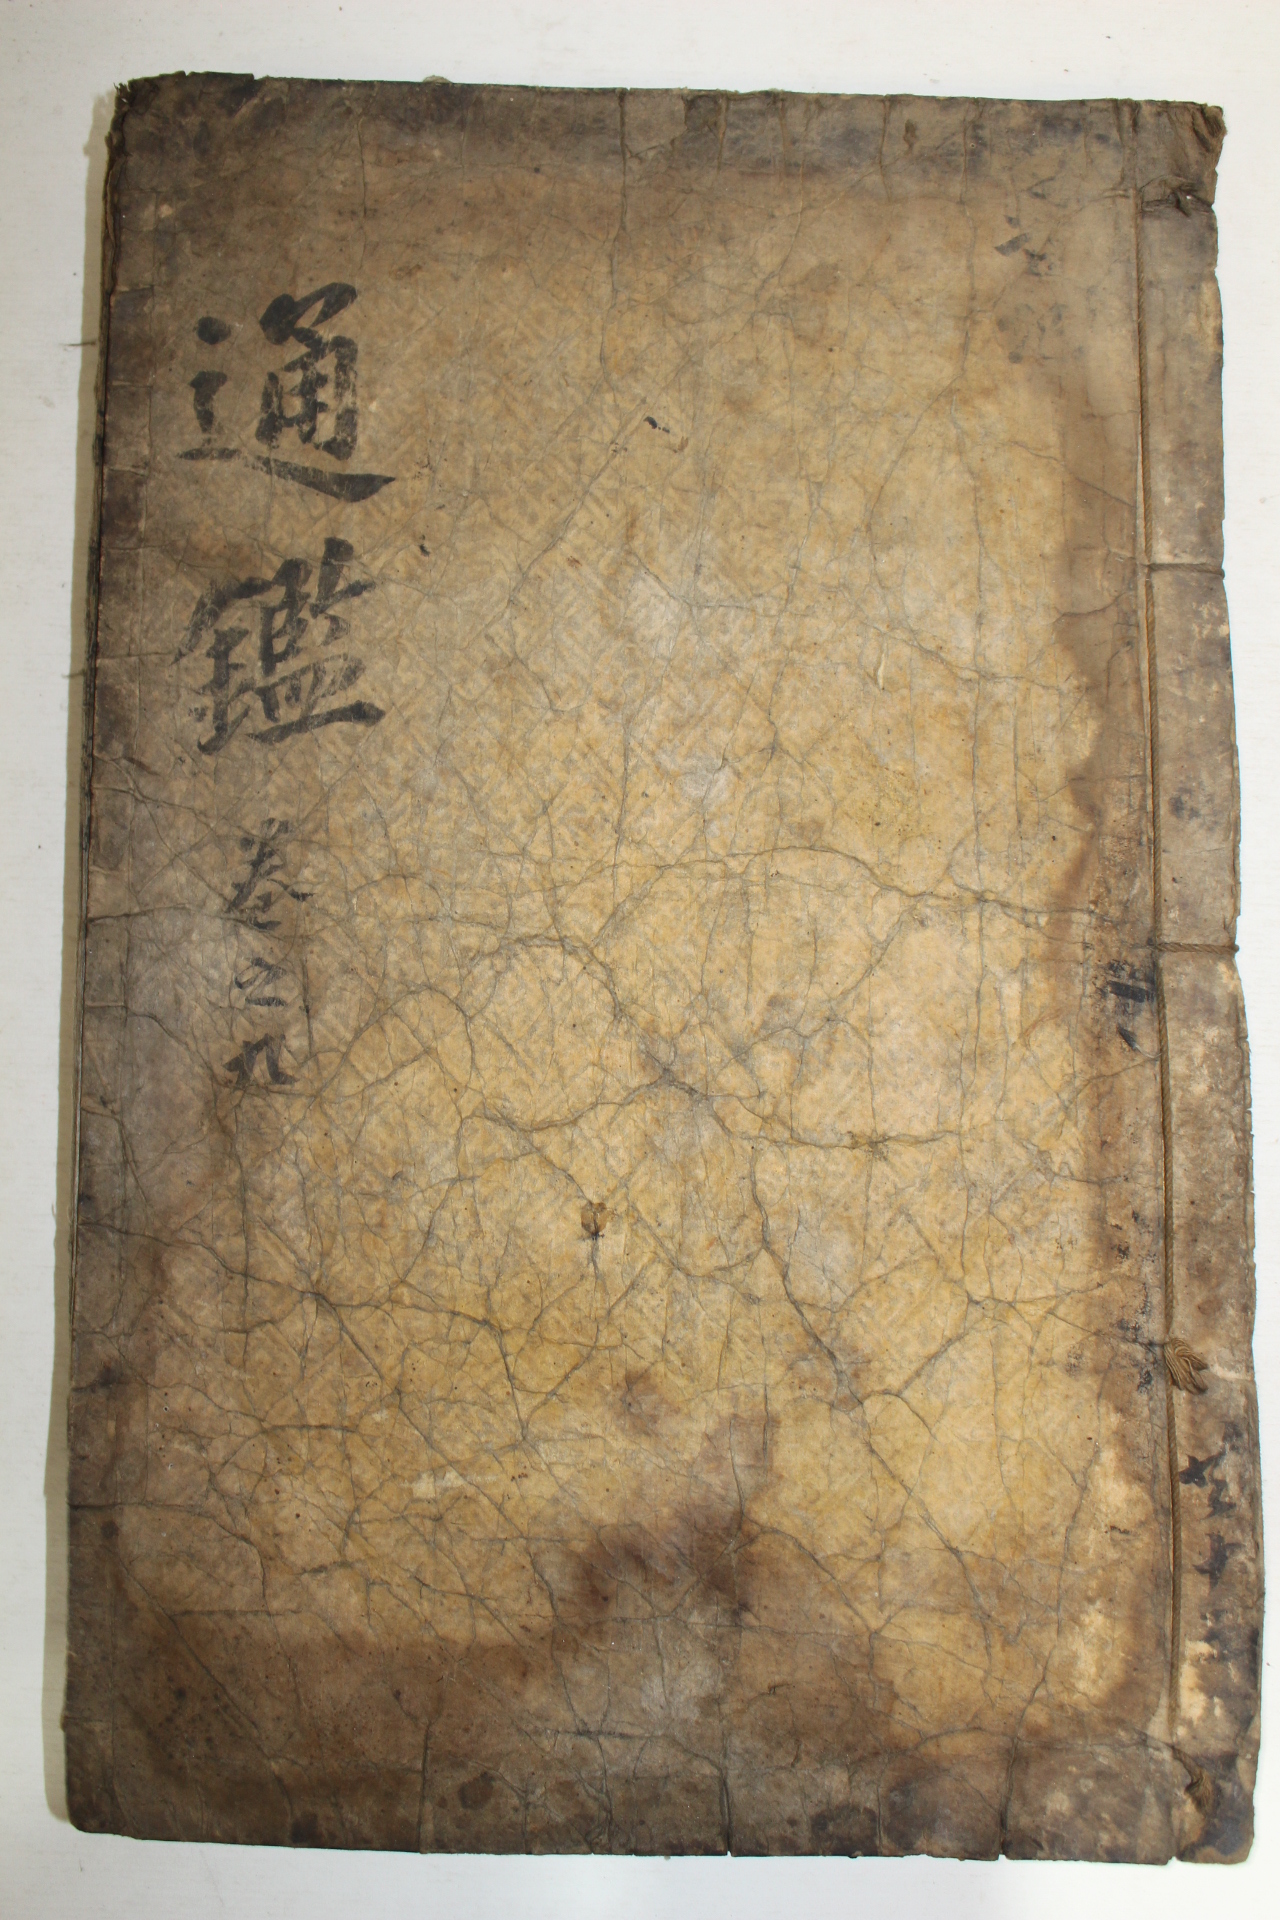 通鑑 卷之九